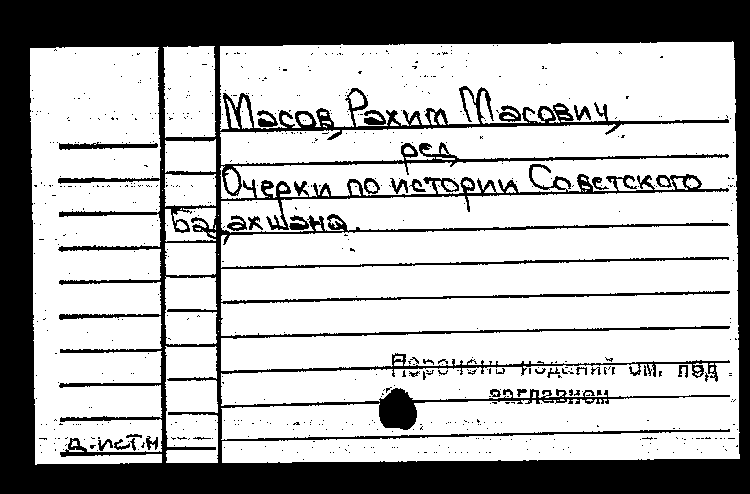 Масов, Рахим Масович,
ред.
Очерки по истории Советского
Бадахшана.
Перечень изданий см. под
заглавием
д.ист.н